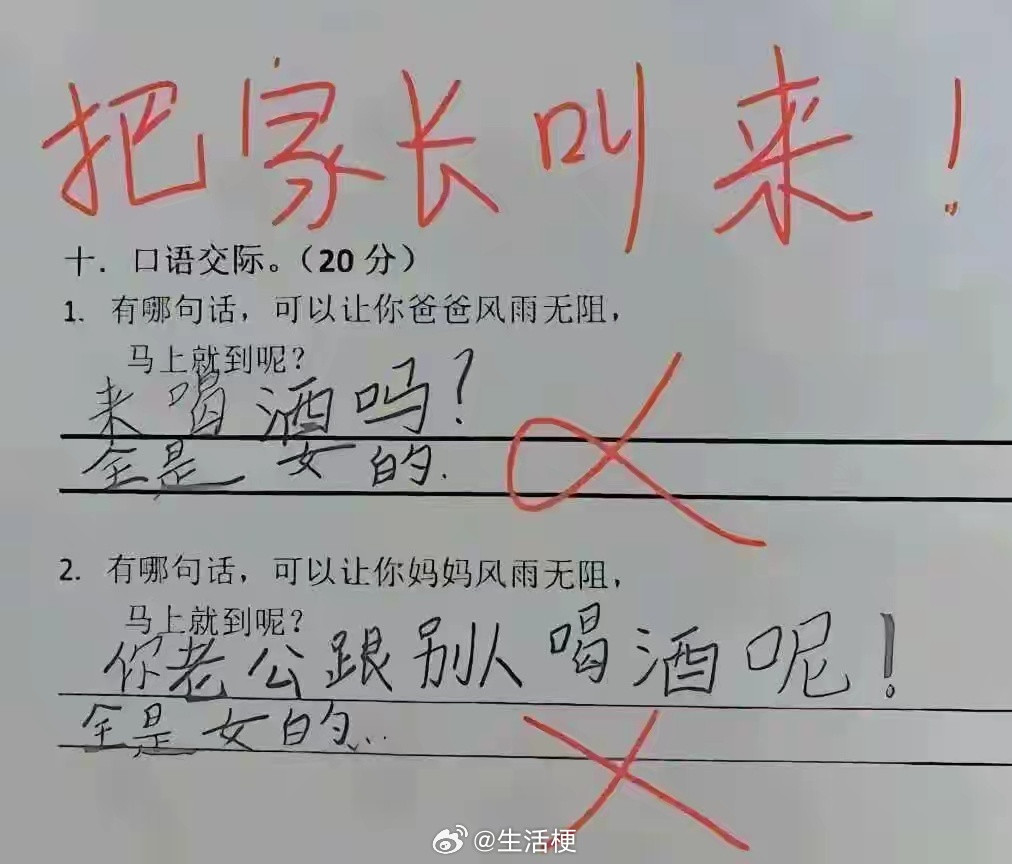 把家长叫来！
十．口语交际。（20 分）
1. 有哪句话，可以让你爸爸风雨无阻，
马上就到呢？
来喝酒吗？
全是女的.
2. 有哪句话，可以让你妈妈风雨无阻，
马上就到呢？
你老公跟别人喝酒呢！
全是女的...
@生活梗